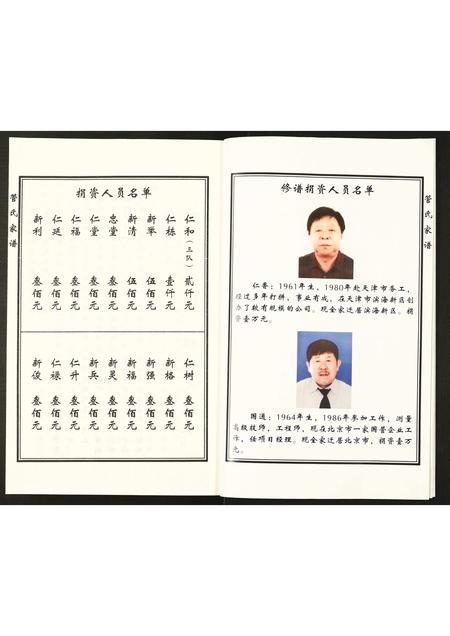 管氏家谱
捐资人员名单
仁和（三队） 贰仟元
仁栋 壹仟元
新举 伍佰元
新清 伍佰元
忠堂 叁佰元
仁堂 叁佰元
仁福 叁佰元
仁延 叁佰元
新利 叁佰元
仁树 叁佰元
新格 叁佰元
新强 叁佰元
新福 叁佰元
新灵 叁佰元
新兵 叁佰元
仁升 叁佰元
仁禄 叁佰元
新俊 叁佰元
修谱捐资人员名单
仁香：1961年生，1980年赴天津市务工，
经过多年打拼，事业有成，在天津市滨海新区创
办了颇有规模的公司。现全家迁居滨海新区。捐
资壹万元。
国通：1964年生，1986年参加工作，测量
高级技师，工程师，现在北京市一家国营企业工
作，任项目经理。现全家迁居北京市，捐资壹万
元。
管氏家谱